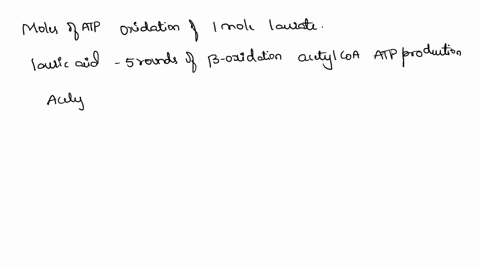 Moles of ATP oxidation of 1 mole laurate.
lauric aid - 5 rounds of β-oxidation acetyl CoA ATP production
Acely